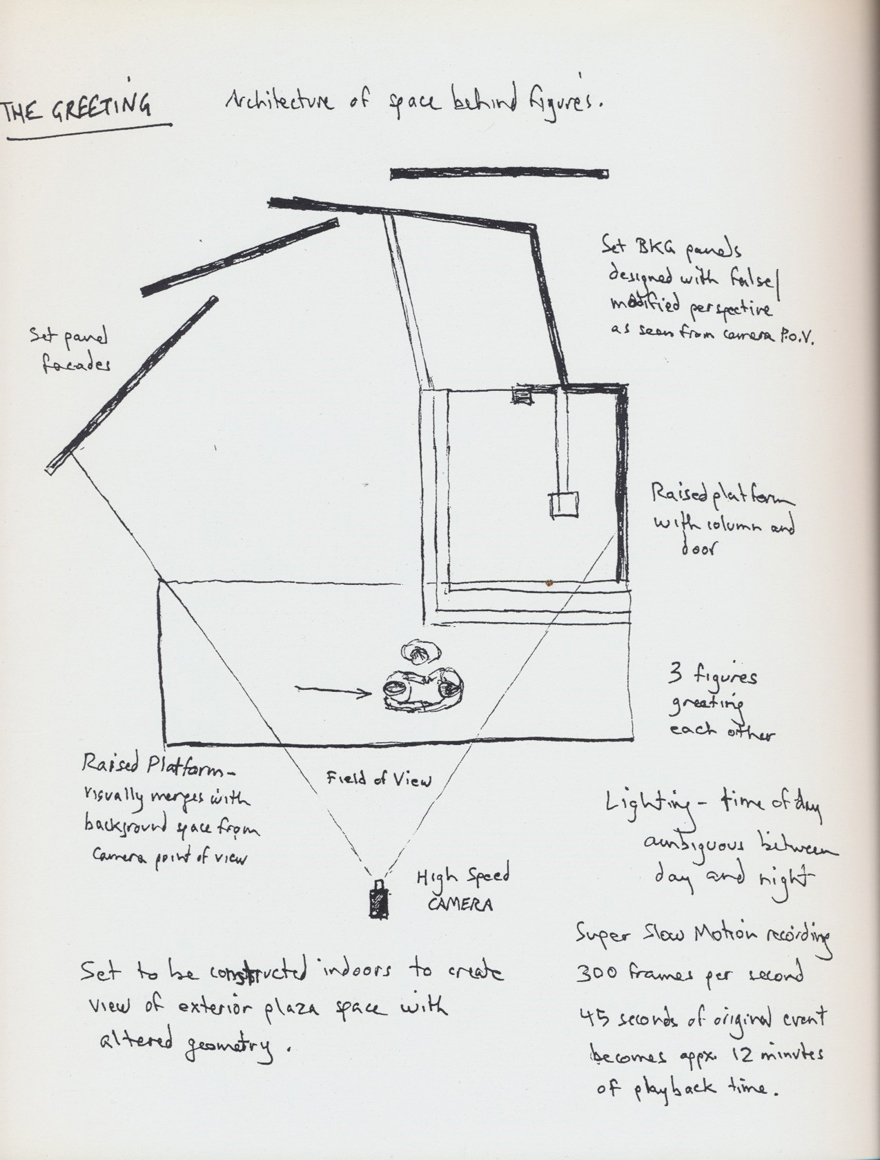 THE GREETING
Architecture of space behind figures.
Set BKG panels
designed with false/
modified perspective
as seen from camera P.O.V.
Set panel
facades
Raised platform
with column and
door
3 figures
greeting
each other
Raised Platform-
visually merges with
background space from
camera point of view
Field of View
High Speed
CAMERA
Lighting - time of day
ambiguous between
day and night
Super Slow Motion recording
300 frames per second
45 seconds of original event
becomes appx. 12 minutes
of playback time.
Set to be constructed indoors to create
view of exterior plaza space with
altered geometry.